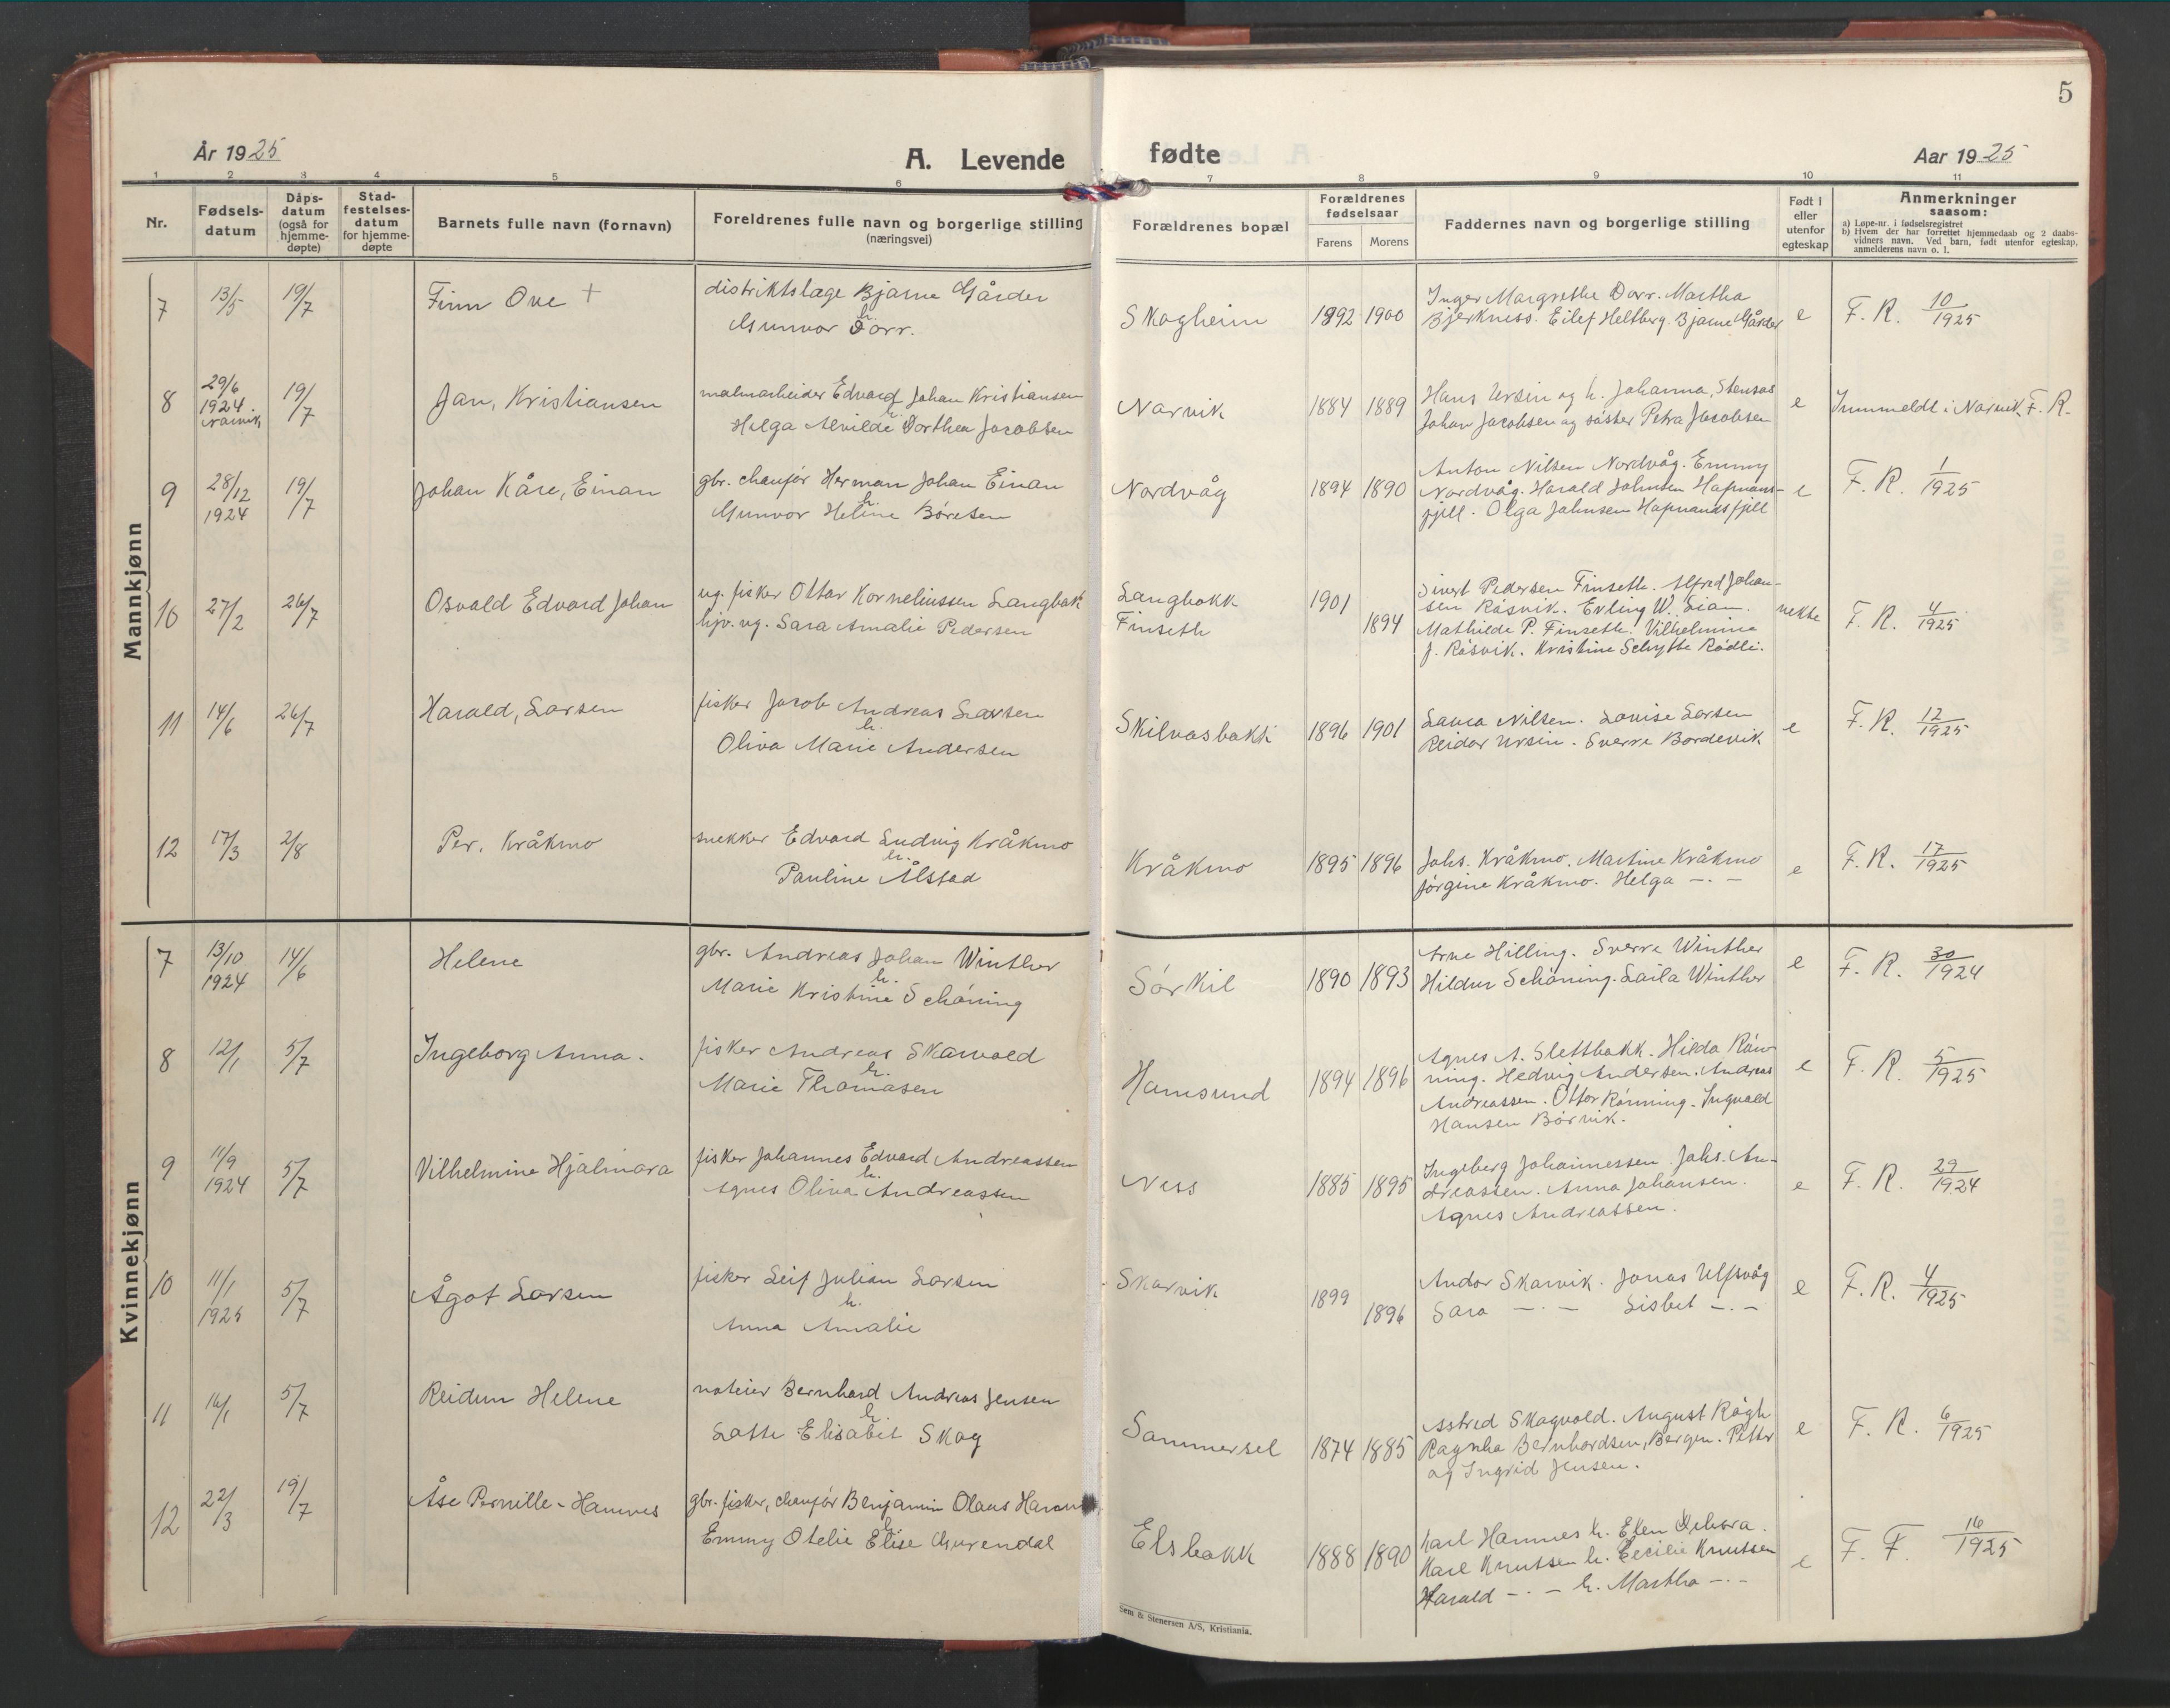 5
År 1925
A. Levende
fødte
Aar 1925
1 2 3 4 5 6 7 8 9 10 11
Nr.
Fødsels-
datum
Dåps-
datum
(også for
hjemme-
døpte)
Stad-
festelses-
datum
for hjemme-
døpte
Barnets fulle navn (fornavn)
Foreldrenes fulle navn og borgerlige stilling
(næringsvei)
Forældrenes bopæl
Forældrenes
fødselsaar
Farens Morens
Faddernes navn og borgerlige stilling
Født i
eller
utenfor
egteskap
Anmerkninger
saasom:
a) Løpe-nr. i fødselsregistret
b) Hvem der har forrettet hjemmedaab og 2 daabs-
vidners navn. Ved barn, født utenfor egteskap,
anmelderens navn o. l.
Mannkjønn
7 13/5 19/7 Finn Ove +
distriktslæge Bjarne Gårder
h.
Gunnvor Dorr.
Skogheim 1892 1900
Inger Margrethe Dorr. Martha
Bjerkness. Eilef Heltberg. Bjarne Gårder
e F. R. 10/1925
8 29/6
1924
Narvik
19/7 Jan, Kristiansen
malmarbeider Edvard Johan Kristiansen
h.
Helga Alvilde Dorthea Jacobsen
Narvik 1884 1889
Hans Ursin og h. Johanna, Stensås
Johan Jacobsen og søster Petra Jacobsen
e Innmeldt i Narvik F. R.
9 28/12
1924
19/7 Johan Kåre, Einan
gbr. chaufør Herman Johan Einan
h.
Gunvor Heline Børesen
Nordvåg 1894 1890
Anton Nilsen Nordvåg. Emmy
Nordvåg. Harald Johnsen Hapnans-
fjell. Olga Johnsen Hapnandsfjell
e F. R. 1/1925
10 27/2 26/7 Osvald Edvard Johan
ug. fisker Ottar Korneliussen Langbak
hjv. ug. Sara Amalie Pedersen
Langbakk
Finseth
1901
1894
Sivert Pedersen Finseth. Alfred Johan-
sen Røsvik. Erling W. Lian.
Mathilde P. Finseth. Vilhelmine
J. Røsvik. Kristine Schytte Rødli.
uekte F. R. 4/1925
11 14/6 26/7 Harald, Larsen
fisker Jacob Andreas Larsen
h.
Oliva Marie Andersen
Skilvasbakk 1896 1901
Laura Nilsen. Lovise Larsen
Reidar Ursin. Sverre Bordevik
e F. R. 12/1925
12 17/3 2/8 Per, Kråkmo
snekker Edvard Ludvig Kråkmo
h.
Pauline Ålstad
Kråkmo 1895 1896
Johs. Kråkmo. Martine Kråkmo
Jørgine Kråkmo. Helga —·—
e F. R. 17/1925
Kvinnekjønn
7 13/10
1924
14/6 Helene
gbr. Andreas Johan Winther
h.
Marie Kristine Schøning
Sørkil 1890 1893
Arne Hilling. Sverre Winther
Hildur Schøning. Laila Winther
e F. R. 30/1924
8 12/1 5/7 Ingeborg Anna.
fisker Andreas Skarvald
h.
Marie Thomasen
Hamsund 1894 1896
Agnes A. Slettbakk. Hilda Røn-
ning. Hedvig Andersen. Andreas
Andreassen. Ottar Rønning. Ingvald
Hansen Børvik.
e F. R. 5/1925
9 11/9
1924
5/7 Vilhelmine Hjalmara
fisker Johannes Edvard Andreassen
h.
Agnes Oliva Andreassen
Ness 1885 1895
Ingeberg Johannessen. Johs. An-
dreassen. Anna Johansen.
Agnes Andreassen.
e F. R. 29/1924
10 11/1
1925
5/7 Ågot Larsen
fisker Leif Julian Larsen
h.
Anna Amalie
Skarvik 1899
1896
Andor Skarvik. Jonas Ulfsvåg
Sara —·— Lisbet —·—
e F. R. 4/1925
11 16/1 5/7 Reidun Helene
noteier Bernhard Andreas Jensen
h.
Lotte Elisabet Skog
Sommersel 1874 1885
Astred Skogvold. August Røgh
Ragnha Bernhardsen, Bergen. Petter
og Ingrid Jensen.
e F. R. 6/1925
12 22/3 19/7 Åse Pernille - Hamnes
gbr. fisker, chaufør Benjamin Olaus
h.
Emmy Otelie Elise Gurendal
Elsbakk 1888 1890
Karl Hamnes h. Ellen
Karl Knutsen h. Cecilie Knutsen
Harald —·— h. Martha —·—
e F. F. 16/1925
Sem & Stenersen A/S, Kristiania.